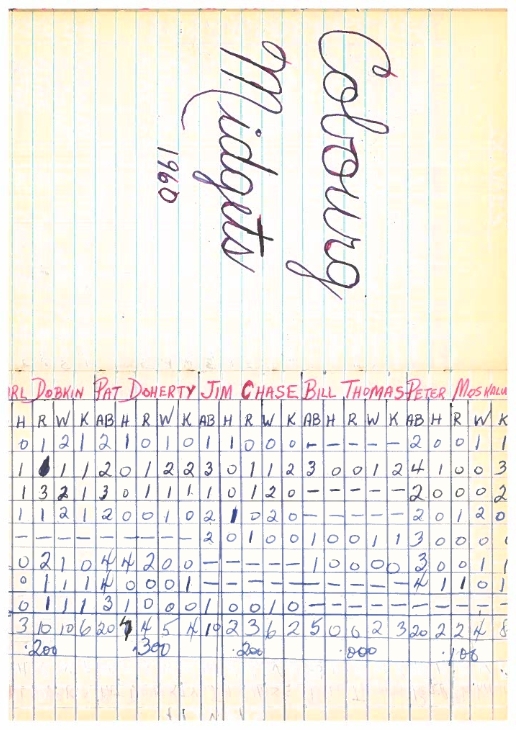 Cobourg
Midgets
1960
RL DOBKIN PAT DOHERTY JIM CHASE BILL THOMAS PETER MOSKALU
H R W K AB H R W K AB H R W K AB H R W K AB H R W K
0 1 2 1 2 1 0 1 0 1 1 0 0 0 - - - - - 2 0 0 1 1
1 1 1 2 0 1 2 2 3 0 1 1 2 3 0 0 1 2 4 1 0 0 3
1 3 2 1 3 0 1 1 1 1 0 1 2 0 - - - - - 2 0 0 0 2
1 1 2 1 2 0 0 1 0 2 1 0 2 0 - - - - - 2 0 1 2 0
- - - - - - - - - 2 0 1 0 0 1 0 0 1 1 3 0 0 0 0
0 2 1 0 4 4 2 0 0 - - - - - 1 0 0 0 0 3 0 0 1 1
0 1 1 1 4 0 0 0 1 - - - - - - - - - - 4 1 1 0 1
0 1 1 1 3 1 0 0 0 1 0 0 1 0 - - - - - - - - - -
3 10 10 6 20 4 5 4 10 2 3 6 2 5 0 0 2 3 20 2 2 4 8
.200 .300 .200 .000 .100